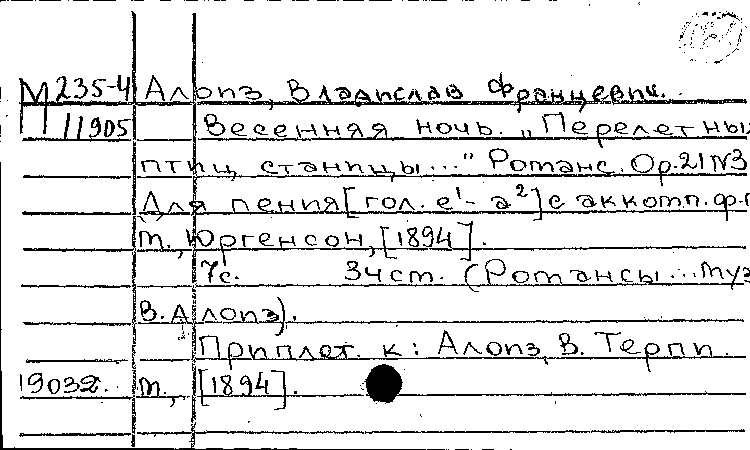 М 235-4 Алоиз, Владислав Францевич.
П 11905 Весенняя ночь. „Перелетны
птиц станицы..." Романс. Op.21 N3
Для пения [гол. e¹-a²] с аккомп. ф-п
М., Юргенсон, [1894].
7с. 34 cm. (Романсы... муз
В. Алоиз).
Приплет. к: Алоиз, В. Терпи.
1903г. М., [1894].